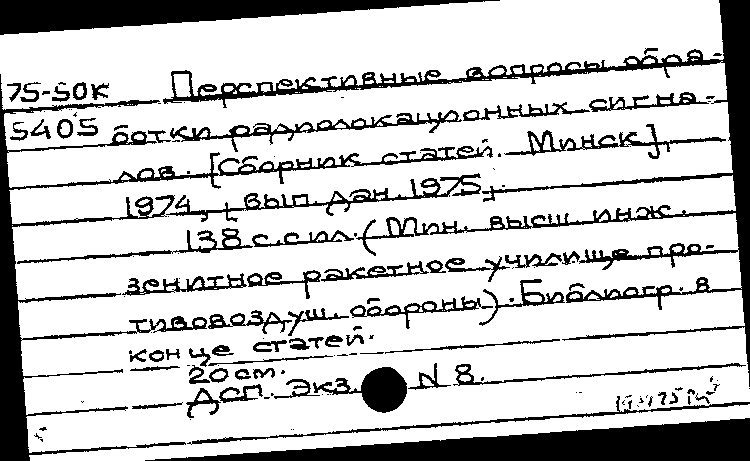 75-50К Перспективные вопросы обра-
5405 ботки радиолокационных сигна-
лов. [Сборник статей. Минск],
1974, [вып. дан. 1975].
138 с. с ил. (Мин. высш. инж.
зенитное ракетное училище про-
тивовоздуш. обороны). Библиогр. в
конце статей.
20 см.
ДСП. Экз. N 8.